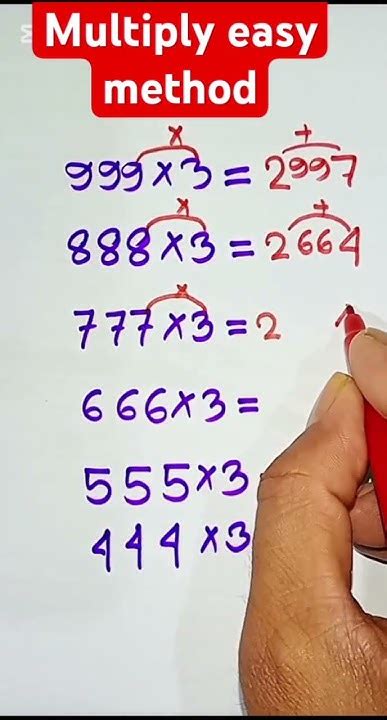 Multiply easy
method
× +
999 × 3 = 2997
× +
888 × 3 = 2664
×
777 × 3 = 2
666 × 3 =
555 × 3
444 × 3